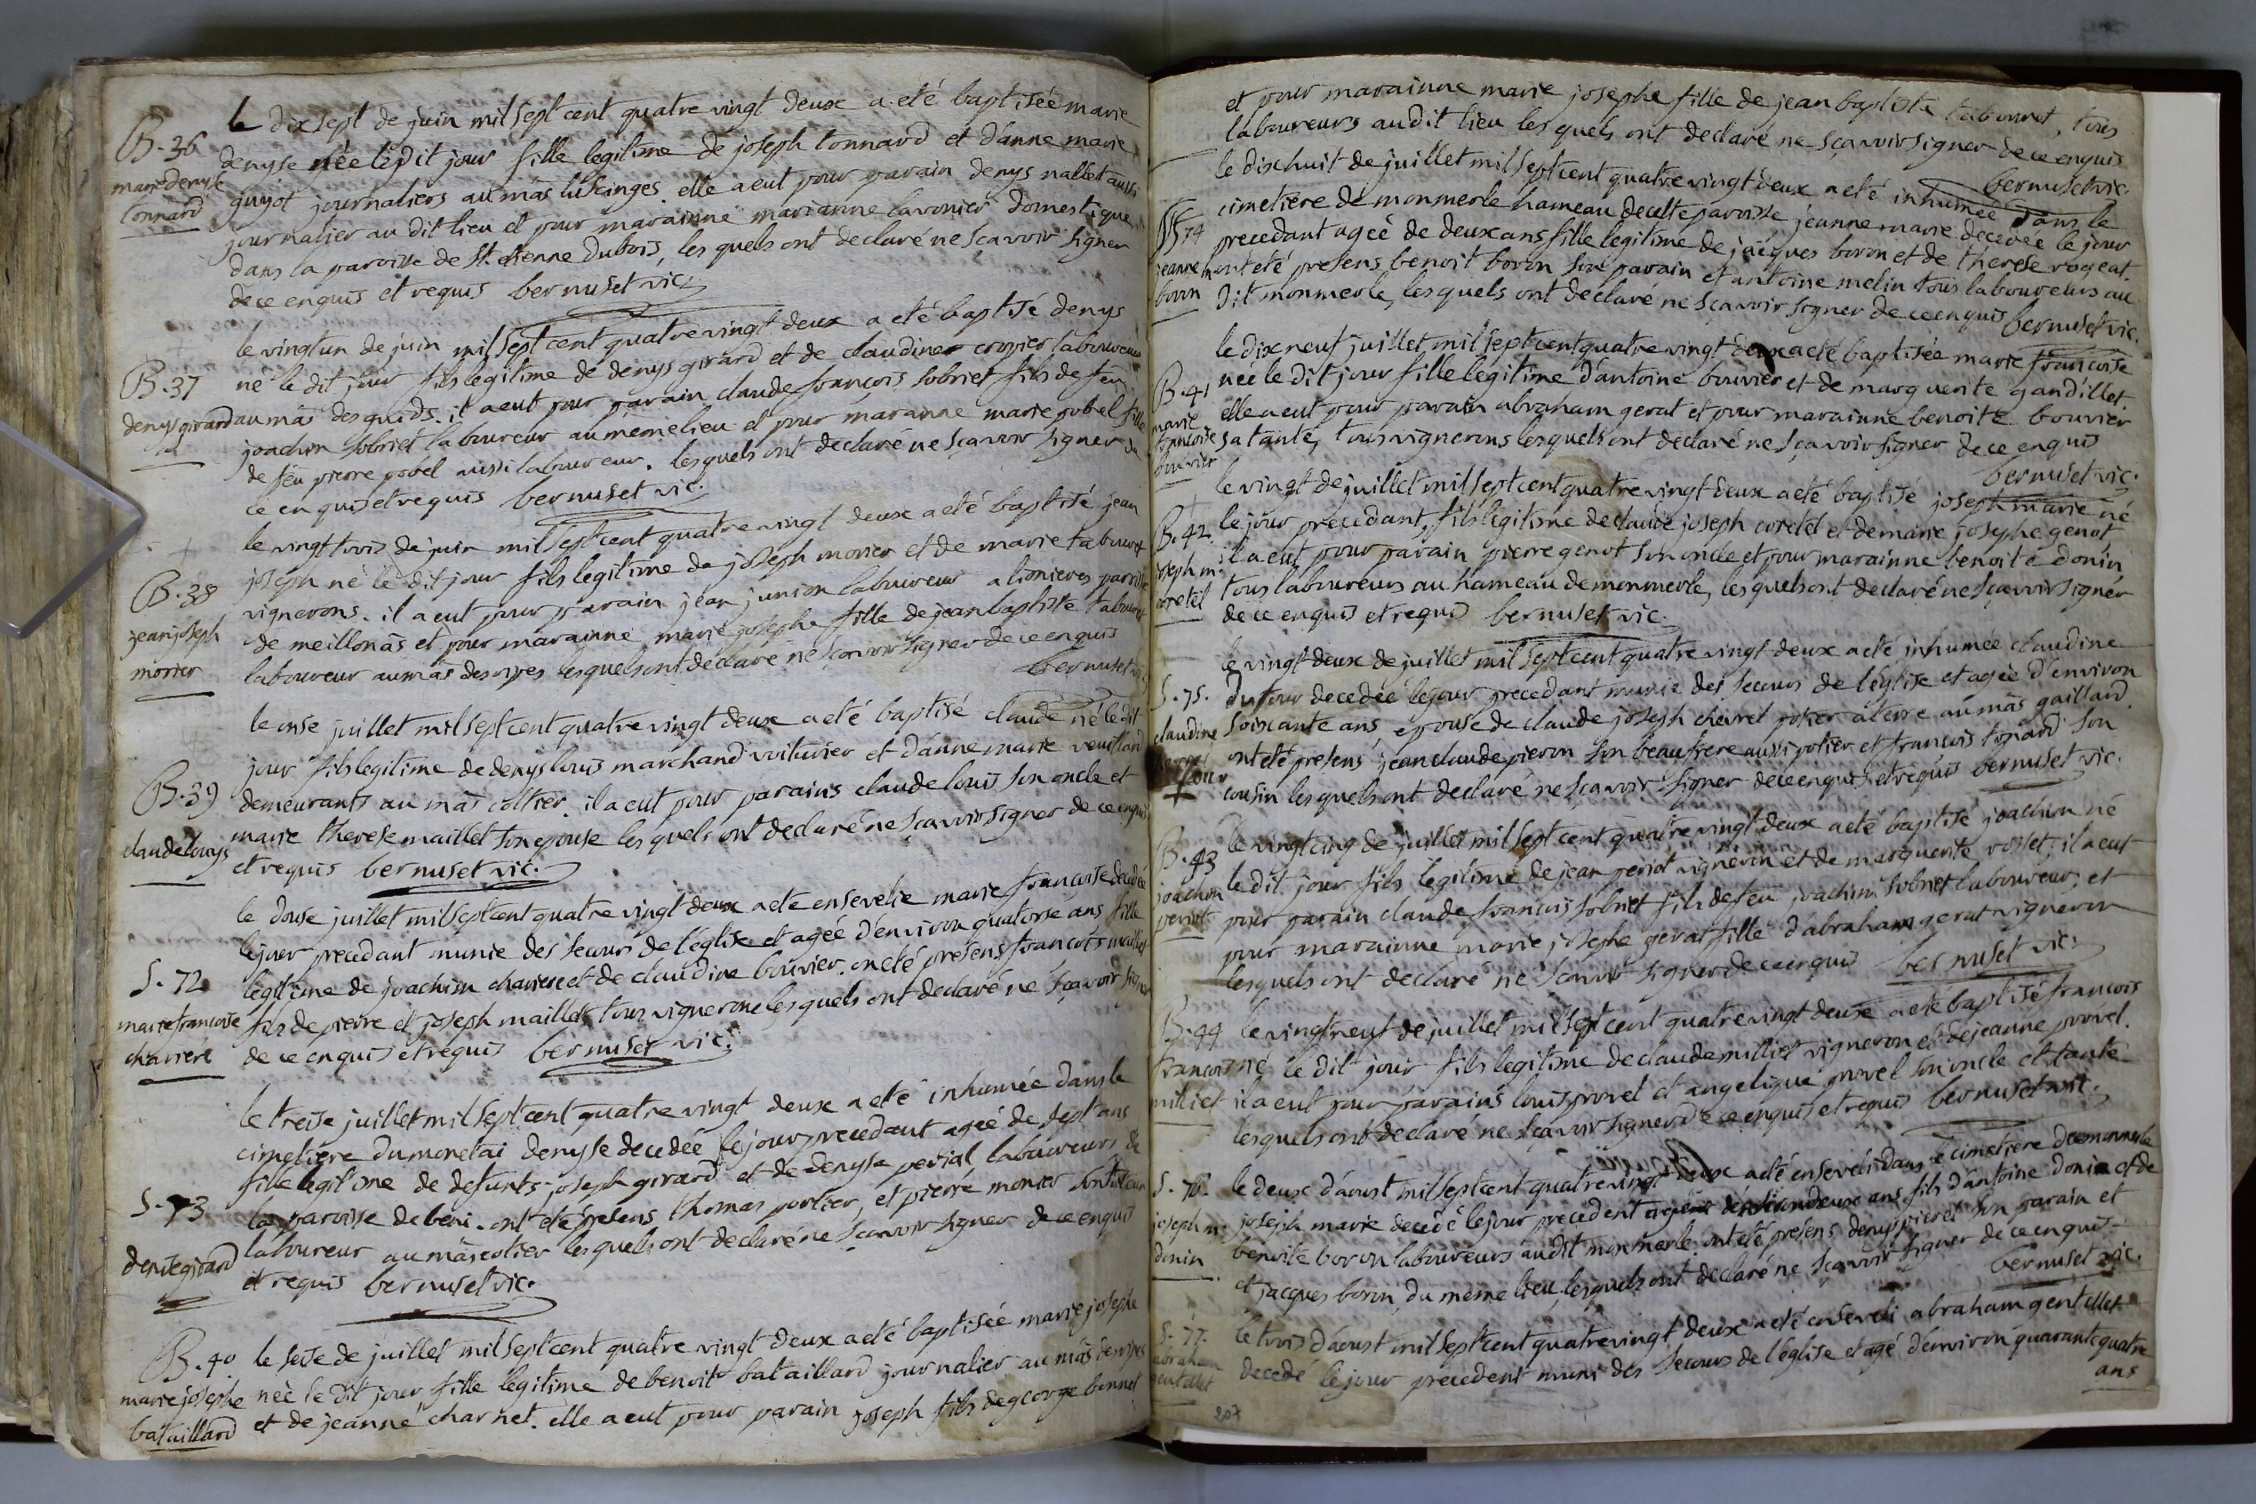 B. 36
marie denyse
tonnard
Le dix sept de juin mil sept cent quatre vingt deux a eté baptisée marie
denyse née le dit jour fille legitime de joseph tonnard et d'anne marie
guyot journaliers au mas luscinges. elle a eut pour parain denys nallet aussi
journalier au dit lieu et pour marainne marianne lavonier domestique
dans la paroisse de st. etienne Dubois, les quels ont declaré ne scavoir signer
de ce enquis et requis bernuset vic.
B. 37
denys girard
le vingt un de juin mil sept cent quatre vingt deux a eté baptisé denys
né le dit jour fils legitime de denys girard et de claudine cropier laboureurs
au mas des guids. il a eut pour parain claude françois sobriet fils de feu
joachim sobriet laboureur au meme lieu et pour marainne marie gobel fille
de feu pierre gobel aussi laboureur. lesquels ont declaré ne sçavoir signer de
ce enquis et requis bernuset vic.
B. 38
jean joseph
morier
le vingt trois de juin mil sept cent quatre vingt deux a eté baptisé jean
joseph né le dit jour fils legitime de joseph morier et de marie tabouret
vignerons. il a eut pour parain jean junion laboureur a lionieres paroisse
de meillonas et pour marainne marie josephe fille de jean baptiste tabouret
laboureur au mas des oyes lesquels ont declaré ne scavoir signer de ce enquis
bernuset vic
B. 39
claude louys
le onse juillet mil sept cent quatre vingt deux a eté baptisé claude né le dit
jour fils legitime de denys louis marchand voiturier et d'anne marie veuillard
demeurants au mas coltier. il a eut pour parains claude louis son oncle et
marie therese maillet son epouse les quels ont declaré ne scavoir signer de ce enquis
et requis bernuset vic.
S. 72
marie francoise
chariere
le douse juillet mil sept cent quatre vingt deux a eté ensevelie marie francoise decedée
le jour precedant munie des secours de l'église et agée d'environ quatorse ans fille
legitime de joachim chariere et de claudine bouvier. ont eté présens francois maillet
fils de pierre et joseph maillet tous vignerons lesquels ont declaré ne sçavoir signer
de ce enquis et requis bernuset vic.
S. 73
denise girard
le treise juillet mil sept cent quatre vingt deux a eté inhumée dans le
cimetiere du monetai denyse decedée le jour precedant agée de sept ans
fille legitime de defunts joseph girard et de denyse perial laboureurs de
la paroisse de beni. ont eté présens thomas portier, et pierre monier son tuteur
laboureur au mas cotier lesquels ont declaré ne sçavoir signer de ce enquis
et requis bernuset vic.
B. 40
marie josephe
bataillard
le seise de juillet mil sept cent quatre vingt deux a eté baptisée marie josephe
née le dit jour fille legitime de benoit bataillard journalier au mas des oyes
et de jeanne charnet. elle a eut pour parain joseph fils de george bonnet
et pour marainne marie josephe fille de jean baptiste tabouret, tous
laboureurs au dit lieu les quels ont declaré ne sçavoir signer de ce enquis
bernuset vic.
S 74
jeanne m
boron
le dix huit de juillet mil sept cent quatre vingt deux a eté inhumée dans le
cimetiere de monmerle hameau de cette paroisse jeanne marie decedée le jour
precedant agée de deux ans fille legitime de jacques boron et de therese rogeat.
ont eté presens benoit boron son parain et antoine melin tous laboureurs au
dit monmerle, les quels ont declaré ne sçavoir signer de ce enquis bernuset vic.
B. 41
marie
francoise
bouvier
le dix neuf juillet mil sept cent quatre vingt deux a eté baptisée marie francoise
née le dit jour fille legitime d'antoine bouvier et de marguerite gandillet
elle a eut pour parain abraham gerat et pour marainne benoite bouvier
sa tante, tous vignerons lesquels ont declaré ne sçavoir signer de ce enquis
bernuset vic.
B. 42
joseph m.
coretel
le vingt de juillet mil sept cent quatre vingt deux a eté baptisé joseph marie né
le jour precedant, fils legitime de claude joseph coretel et de marie josephe genot
il a eut pour parain pierre genot son oncle et pour marainne benoite donin
tous laboureurs au hameau de monmerle, lesquels ont declaré ne sçavoir signer
de ce enquis et requis bernuset vic.
S. 75.
claudine
dufour
le vingt deux de juillet mil sept cent quatre vingt deux a eté inhumée claudine
dufour decedée le jour precedant munie des secours de l'église et agée d'environ
soixante ans, epouse de claude joseph chevret potier à terre au mas gaillard.
ont eté présens jean claude pieron son beaufrere aussi potier et francois tonard son
cousin lesquels ont declaré ne sçavoir signer de ce enquis et requis bernuset vic.
B. 43
joachim
periot
le vingt cinq de juillet mil sept cent quatre vingt deux a eté baptisé joachim né
le dit jour fils legitime de jean periot vigneron et de marguerite rosset; il a eut
pour parain claude francois sobriet fils de feu joachim sobriet laboureur, et
pour marainne marie josephe gerat fille d'abraham gerat vigneron
lesquels ont declaré ne scavoir signer de ce enquis bernuset vic.
B. 44
francois
milliet
le vingt neuf de juillet mil sept cent quatre vingt deux a eté baptisé francois
né le dit jour fils legitime de claude milliet vigneron et de jeanne provel.
il a eut pour parains louis provel et angelique provel son oncle et tante
lesquels ont declaré ne sçavoir signer de ce enquis et requis bernuset vic.
S. 76.
joseph m.
donin
le deux d'aoust mil sept cent quatre vingt deux a eté enseveli dans le cimetiere de monmerle
joseph marie decedé le jour precedent agé d'environ deux ans fils d'antoine donin et de
benoite boron laboureurs au dit monmerle. ont eté présens denys pieret son parain et
et jacques boron, du même lieu, lesquels ont declaré ne sçavoir signer de ce enquis
bernuset vic.
S. 77.
abraham
gentillet
le trois d'aoust mil sept cent quatre vingt deux a eté enseveli abraham gentillet
decedé le jour precedent muni des secours de l'église et agé d'environ quarante quatre
ans
207